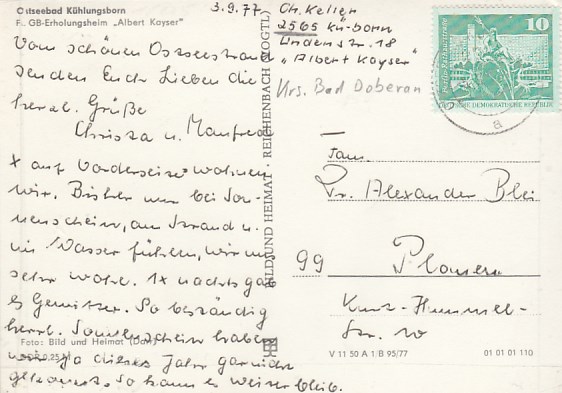 Ostseebad Kühlungsborn
F. GB-Erholungsheim „Albert Kayser"
3.9.77
Ch. Keller
2565 Kü-born
Lindenstr. 18
„Albert Kayser"
Krs. Bad Doberan
Vom schönen Ostseestrand
senden Euch Lieben die
herzl. Grüße
Christa u. Manfred
x auf Vorderseite wohnen
wir. Bisher nur bei Son-
nenschein, am Strand u.
im Wasser fühlen, wir uns
sehr wohl. 1x nachts gab
es Gewitter. So beständig
herrl. Sonnenschein haben
wir ja dieses Jahr gar nicht
gekannt. So kann es weiter bleib.
BILD UND HEIMAT · REICHENBACH (VOGTL)
10
DEUTSCHE DEMOKRATISCHE REPUBLIK
a
Fam.
Dr. Alexander Blei
99 Plauen
Kurt-Himmel-
Str. 10
Foto: Bild und Heimat
0,25
V 11 50 A 1 B 95/77
01 01 01 110